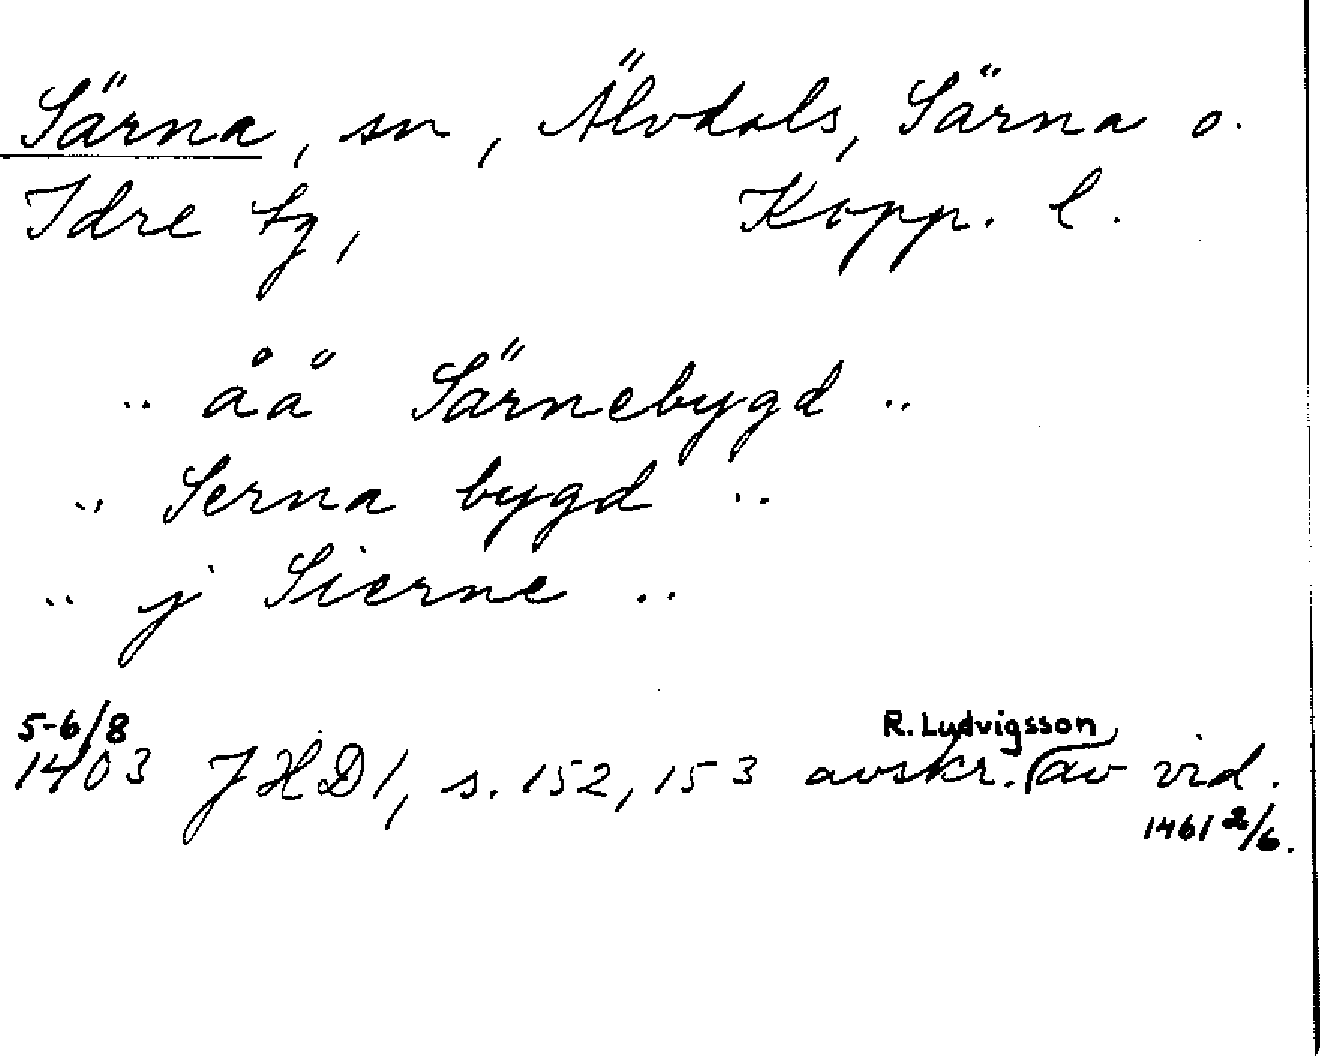 Särna, sn, Älvdals, Särna o.
Idre tg, Kopp. l.
.. åå Särnebygd ..
.. Serna bygd ..
.. j Sierne ..
5-6/8
1403 JHD 1, s. 152, 153 avskr. R. Ludvigsson av vid.
1461 2/6.